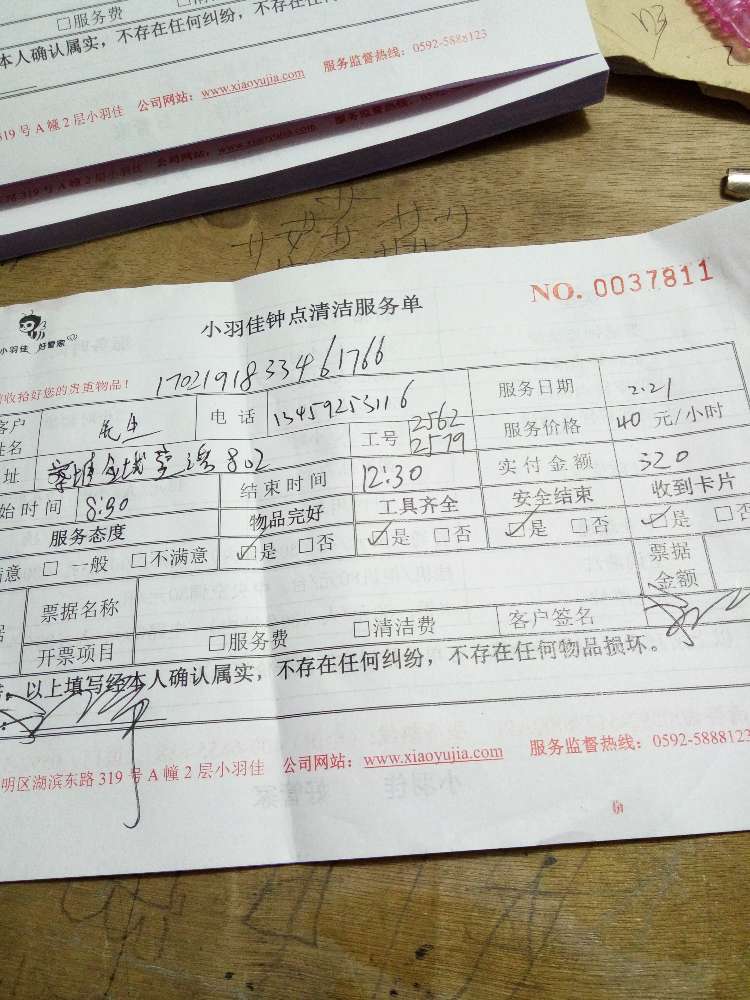 □服务费
本人确认属实，不存在任何纠纷，不存在任何
319号A幢2层小羽佳 公司网站：www.xiaoyujia.com 服务监督热线：0592-5888123
路319号A幢2层小羽佳 公司网站：www.xiaoyujia.com 服务监督热线：0592
小羽佳 好管家
小羽佳钟点清洁服务单
NO. 0037811
收拾好您的贵重物品！
1702191833461766
客户姓名 电话 13459253116 服务日期 2.21
址 802 工号 2562 2579 服务价格 40元/小时
始时间 8:30 结束时间 12:30 实付金额 320
服务态度 物品完好 工具齐全 安全结束 收到卡片
满意 □一般 □不满意 □是 □否 □是 □否 □是 □否 □是 □否
票据名称 票据金额
开票项目 □服务费 □清洁费 客户签名
以上填写经本人确认属实，不存在任何纠纷，不存在任何物品损坏。
明区湖滨东路319号A幢2层小羽佳 公司网站：www.xiaoyujia.com 服务监督热线：0592-5888123